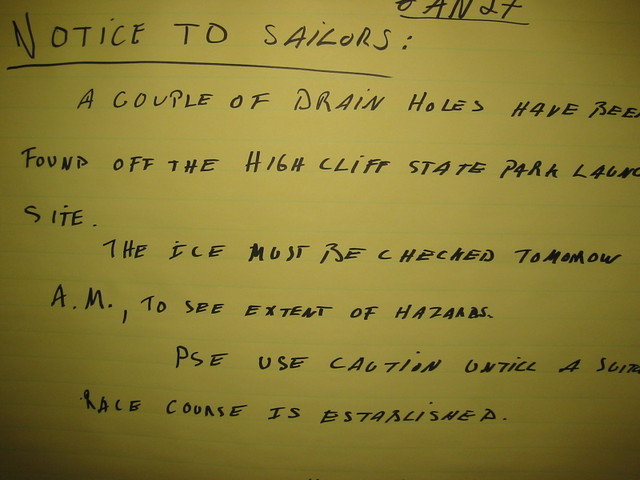 JAN 27
NOTICE TO SAILORS:
A COUPLE OF DRAIN HOLES HAVE BEEN
FOUND OFF THE HIGH CLIFF STATE PARK LAUNC
SITE.
THE ICE MUST BE CHECKED TOMOMOW
A.M., TO SEE EXTENT OF HAZARDS.
PSE USE CAUTION UNTILL A
RACE COURSE IS ESTABLISHED.